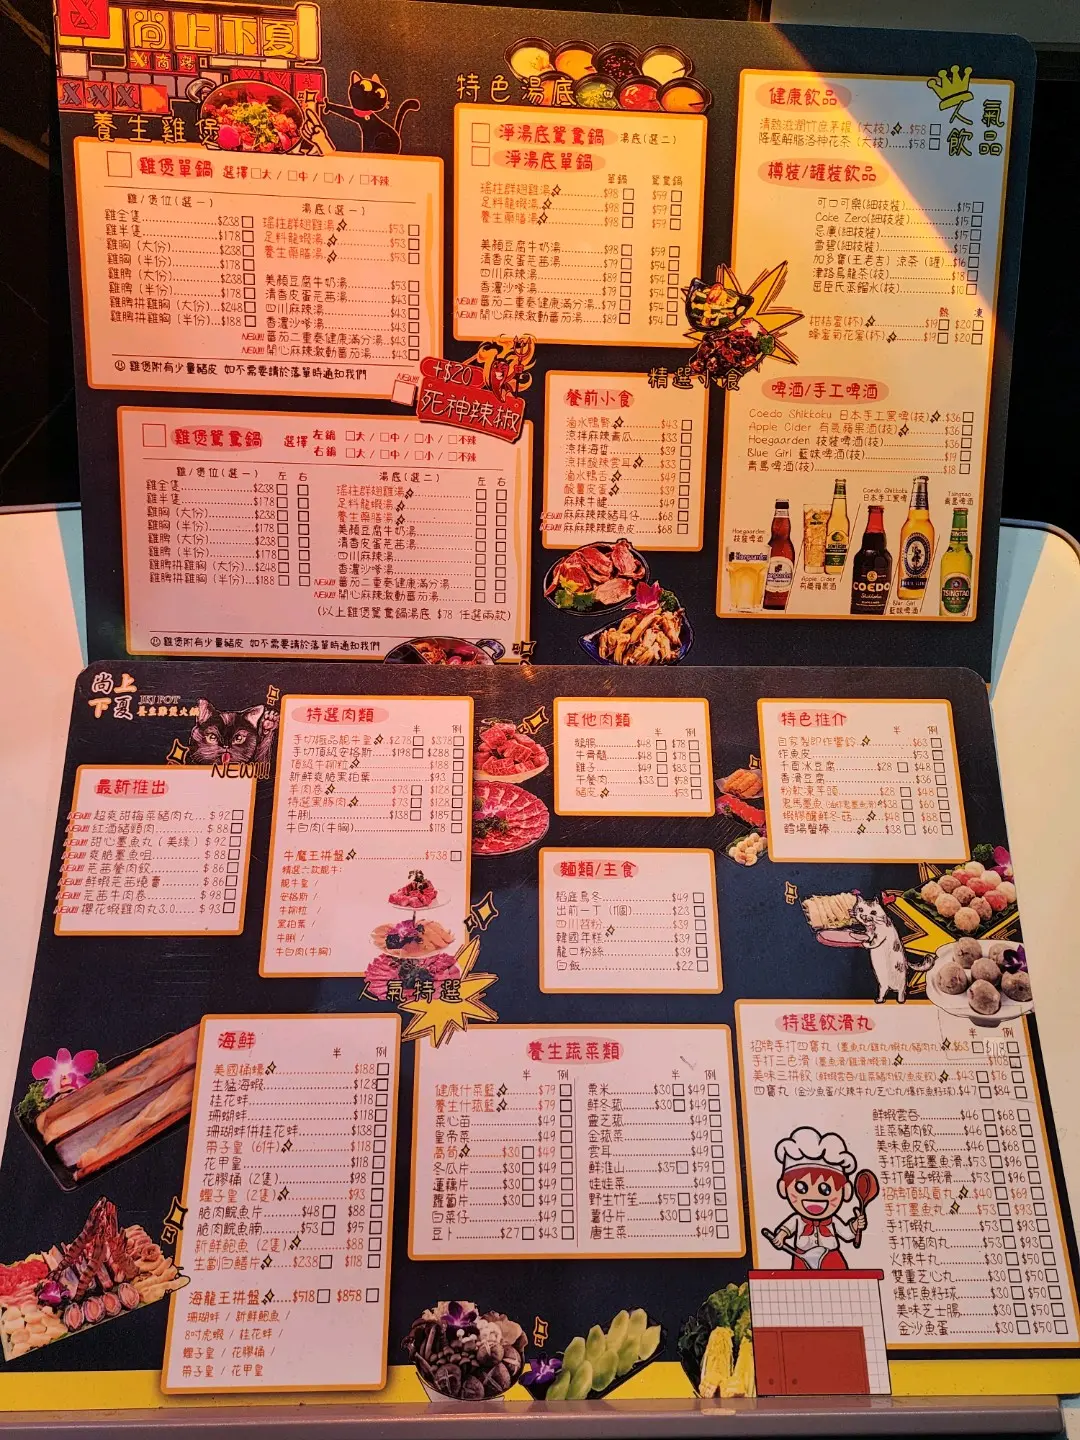 尚上下夏
養生雞煲
雞煲單鍋 選擇 □大 / □中 / □小 / □不辣
雞/煲位(選一)
雞全隻 $238
雞半隻 $178
雞胸 (大份) $238
雞胸 (半份) $178
雞髀 (大份) $238
雞髀 (半份) $178
雞髀拼雞胸 (大份) $248
雞髀拼雞胸 (半份) $188
湯底(選一)
瑤柱群翅雞湯 $53
足料龍蝦湯 $53
養生藥膳湯 $53
美顏豆腐牛奶湯 $53
清香皮蛋芫茜湯 $43
四川麻辣湯 $43
香濃沙嗲湯 $43
NEW!! 蕃茄二重奏健康滿分湯 $43
NEW!! 開心麻辣激動蕃茄湯 $43
雞煲附有少量豬皮 如不需要請於落單時通知我們
NEW!!
+$20
死神辣椒
雞煲鴛鴦鍋 選擇
左鍋 □大 / □中 / □小 / □不辣
右鍋 □大 / □中 / □小 / □不辣
雞/煲位(選一) 左 右
雞全隻 $238
雞半隻 $178
雞胸 (大份) $238
雞胸 (半份) $178
雞髀 (大份) $238
雞髀 (半份) $178
雞髀拼雞胸 (大份) $248
雞髀拼雞胸 (半份) $188
湯底(選二) 左 右
瑤柱群翅雞湯
足料龍蝦湯
養生藥膳湯
美顏豆腐牛奶湯
清香皮蛋芫茜湯
四川麻辣湯
香濃沙嗲湯
NEW!! 蕃茄二重奏健康滿分湯
NEW!! 開心麻辣激動蕃茄湯
(以上雞煲鴛鴦鍋湯底 $78 任選兩款)
雞煲附有少量豬皮 如不需要請於落單時通知我們
特色湯底
淨湯底鴛鴦鍋 湯底(選二)
淨湯底單鍋
單鍋 鴛鴦鍋
瑤柱群翅雞湯 $98 $59
足料龍蝦湯 $98 $59
養生藥膳湯 $98 $59
美顏豆腐牛奶湯 $98 $59
清香皮蛋芫茜湯 $79 $54
四川麻辣湯 $89 $54
香濃沙嗲湯 $79 $54
NEW!! 蕃茄二重奏健康滿分湯 $79 $54
NEW!! 開心麻辣激動蕃茄湯 $89 $54
精選小食
餐前小食
滷水鴨腎 $43
涼拌麻辣青瓜 $33
涼拌海蜇 $39
涼拌酸辣雲耳 $33
滷水鴨舌 $49
酸薑皮蛋 $39
麻辣牛𦟌 $49
NEW!! 麻麻辣辣豬耳仔 $68
NEW!! 麻麻辣辣鯇魚皮 $68
人氣飲品
健康飲品
清熱滋潤竹蔗茅根 (大枝) $58
降壓解脂洛神花茶 (大枝) $58
樽裝/罐裝飲品
可口可樂(細枝裝) $15
Coke Zero(細枝裝) $15
忌廉(細枝裝) $15
雪碧(細枝裝) $15
加多寶(王老吉) 涼茶 (罐) $16
津路烏龍茶(枝) $18
屈臣氏蒸餾水(枝) $10
熱 凍
柑桔蜜(杯) $19 $20
蜂蜜菊花蜜(杯) $19 $20
啤酒/手工啤酒
Coedo Shikkoku 日本手工黑啤(枝) $36
Apple Cider 有氣蘋果酒(枝) $36
Hoegaarden 枝裝啤酒(枝) $36
Blue Girl 藍妹啤酒(枝) $19
青島啤酒(枝) $18
Hoegaarden
枝裝啤酒
Apple Cider
有氣蘋果酒
Coedo Shikkoku
日本手工黑啤
Blue Girl
藍妹啤酒
Tsingtao
青島啤酒
COEDO
TSINGTAO
尚上下夏
養生雞煲火鍋
NEW!!!
最新推出
NEW!! 超爽甜梅菜豬肉丸 $92
NEW!! 紅酒豬頸肉 $88
NEW!! 甜心墨魚丸 (美綠) $92
NEW!! 爽脆墨魚咀 $88
NEW!! 芫茜餐肉餃 $86
NEW!! 鮮蝦芫茜燒賣 $86
NEW!! 芫茜牛肉卷 $98
NEW!! 櫻花蝦雞肉丸3.0 $93
特選肉類
半 例
手切極品靚牛皇 $278 $378
手切頂級安格斯 $198 $288
頂級牛柳粒 $188
新鮮爽脆黑柏葉 $93
羊肉卷 $73 $128
特選黑豚肉 $73 $128
牛脷 $138 $185
牛白肉(牛胸) $118
牛魔王拼盤 $538
精選六款靚牛:
靚牛皇 /
安格斯 /
牛柳粒 /
黑柏葉 /
牛脷 /
牛白肉(牛胸)
人氣特選
其他肉類
半 例
鵝腸 $48 $78
牛骨髓 $48 $78
雞子 $49 $83
午餐肉 $33 $58
豬皮 $53
麵類/主食
稻庭烏冬 $49
出前一丁 (1個) $23
四川苕粉 $39
韓國年糕 $39
龍口粉絲 $39
白飯 $22
特色推介
半 例
自家製即炸響鈴 $63
炸魚皮 $53
千頁冰豆腐 $28 $48
香滑豆腐 $36
粉軟凍芋頭 $28 $48
鬼馬墨魚 $38 $60
蝦膠釀鮮冬菇 $48 $88
鱈場蟹嚓 $38 $60
海鮮
半 例
美國桶蠔 $188
生猛海蝦 $128
桂花蚌 $118
珊瑚蚌 $118
珊瑚蚌拼桂花蚌 $138
帶子皇 (6件) $118
花甲皇 $118
花膠桶 (2隻) $98
蟶子皇 (2隻) $93
脆肉鯇魚片 $48 $88
脆肉鯇魚腩 $53 $95
新鮮鮑魚 (2隻) $88
生劏白鱔片 $238 $118
海龍王拼盤 $518 $858
珊瑚蚌 / 新鮮鮑魚 /
8吋虎蝦 / 桂花蚌 /
蟶子皇 / 花膠桶 /
帶子皇 / 花甲皇
養生蔬菜類
半 例
健康什菜籃 $79
養生什菰籃 $79
菜心苗 $49
皇帝菜 $49
萵筍 $30 $49
冬瓜片 $30 $49
蓮藕片 $30 $49
蘿蔔片 $30 $49
白菜仔 $49
豆卜 $27 $43
半 例
粟米 $30 $49
鮮冬菰 $30 $49
靈芝菰 $49
金菰菜 $49
雲耳 $49
鮮淮山 $35 $59
娃娃菜 $49
野生竹笙 $55 $99
薯仔片 $30 $49
唐生菜 $49
特選餃滑丸
半 例
招牌手打四寶丸 (墨魚丸/雞丸/蝦丸/豬肉丸) $63 $118
手打三色滑 (墨魚滑/雞滑/蝦滑) $108
美味三拼餃 (鮮蝦雲吞/韭菜豬肉餃/魚皮餃) $43 $76
四寶丸 (金沙魚蛋/火辣牛丸/芝心丸/爆炸魚籽球) $47 $84
鮮蝦雲吞 $46 $68
韭菜豬肉餃 $46 $68
美味魚皮餃 $46 $68
手打瑤柱墨魚滑 $53 $96
手打蟹子蝦滑 $53 $96
招牌頂級貢丸 $40 $69
手打墨魚丸 $53 $93
手打蝦丸 $53 $93
手打豬肉丸 $53 $93
火辣牛丸 $30 $50
雙重芝心丸 $30 $50
爆炸魚籽球 $30 $50
美味芝士腸 $30 $50
金沙魚蛋 $30 $50